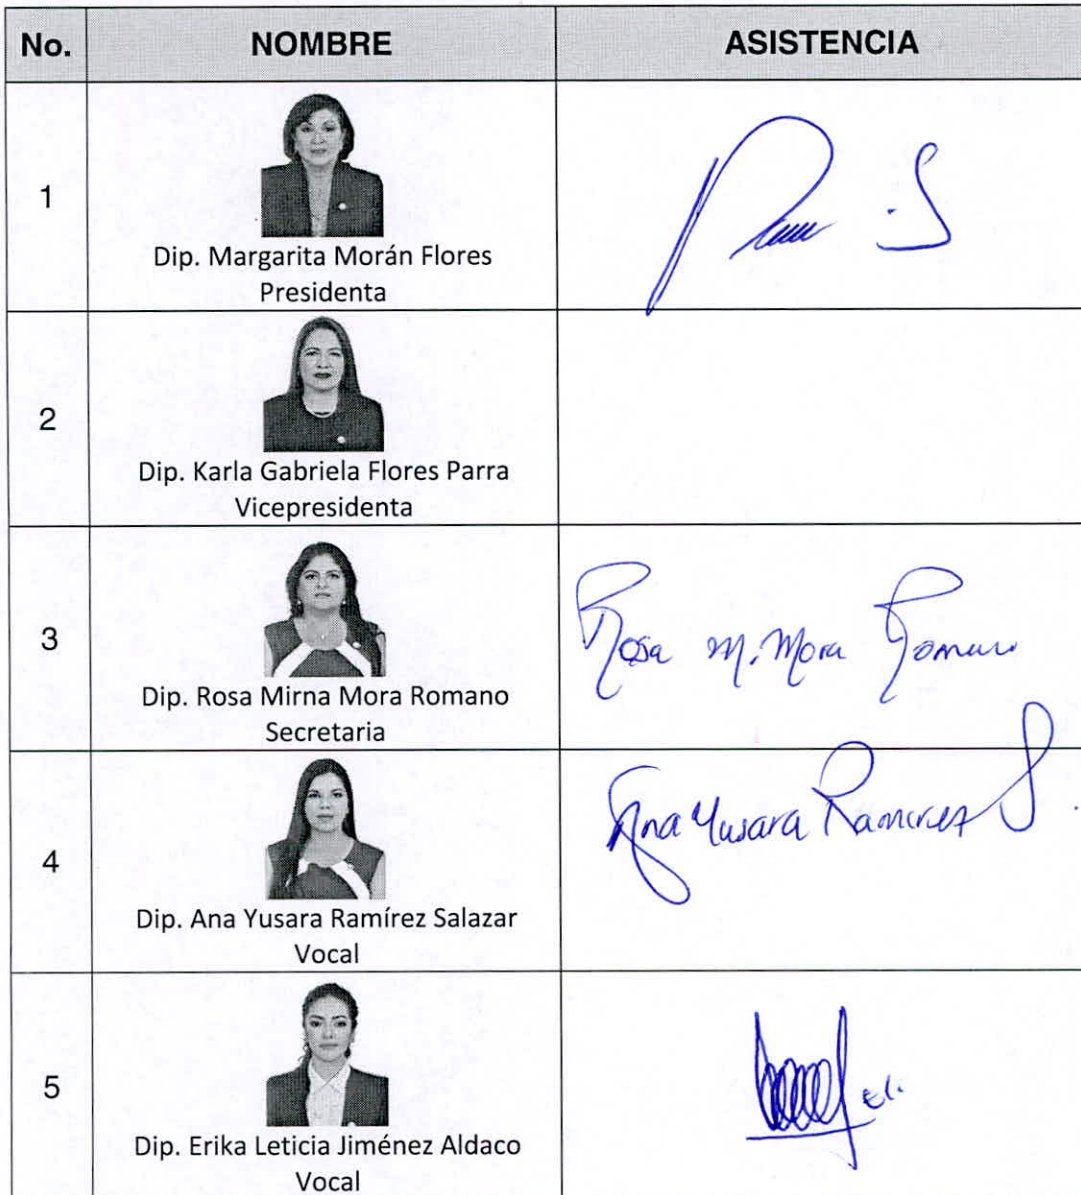 No. NOMBRE ASISTENCIA
1
Dip. Margarita Morán Flores
Presidenta
2
Dip. Karla Gabriela Flores Parra
Vicepresidenta
3
Rosa M. Mora Romano
Dip. Rosa Mirna Mora Romano
Secretaria
4
Ana Yusara Ramirez S.
Dip. Ana Yusara Ramírez Salazar
Vocal
5
Dip. Erika Leticia Jiménez Aldaco
Vocal